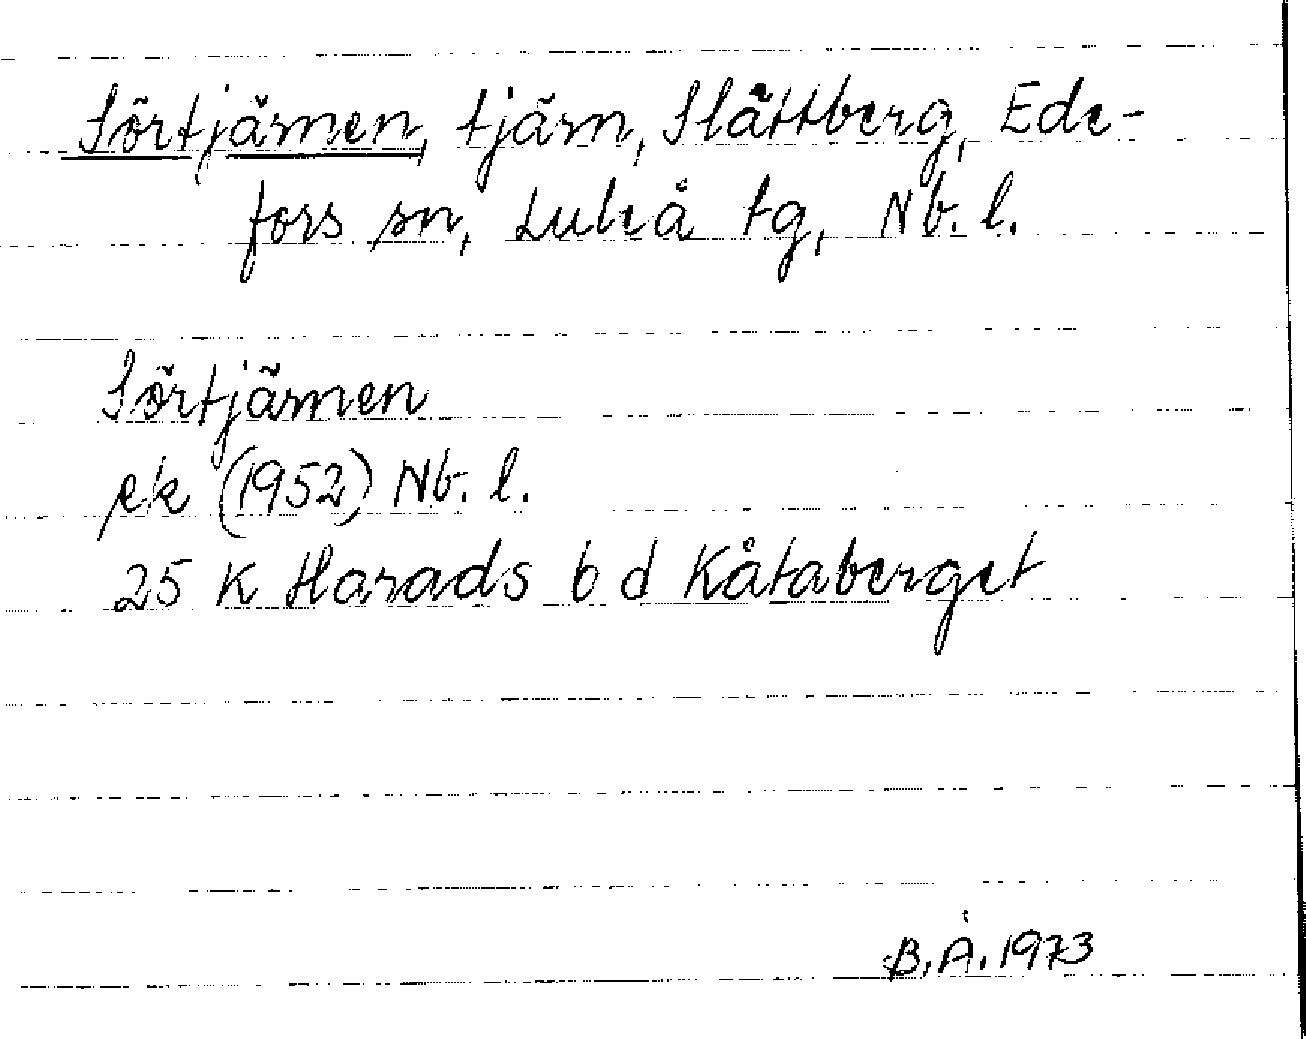 Sörtjärnen, tjärn, Slättberg, Ede-
fors sn, Luleå tg, Nb. l.
Sörtjärnen
ek (1952) Nb. l.
25 K Harads b d Kåtaberget
B.Å. 1973